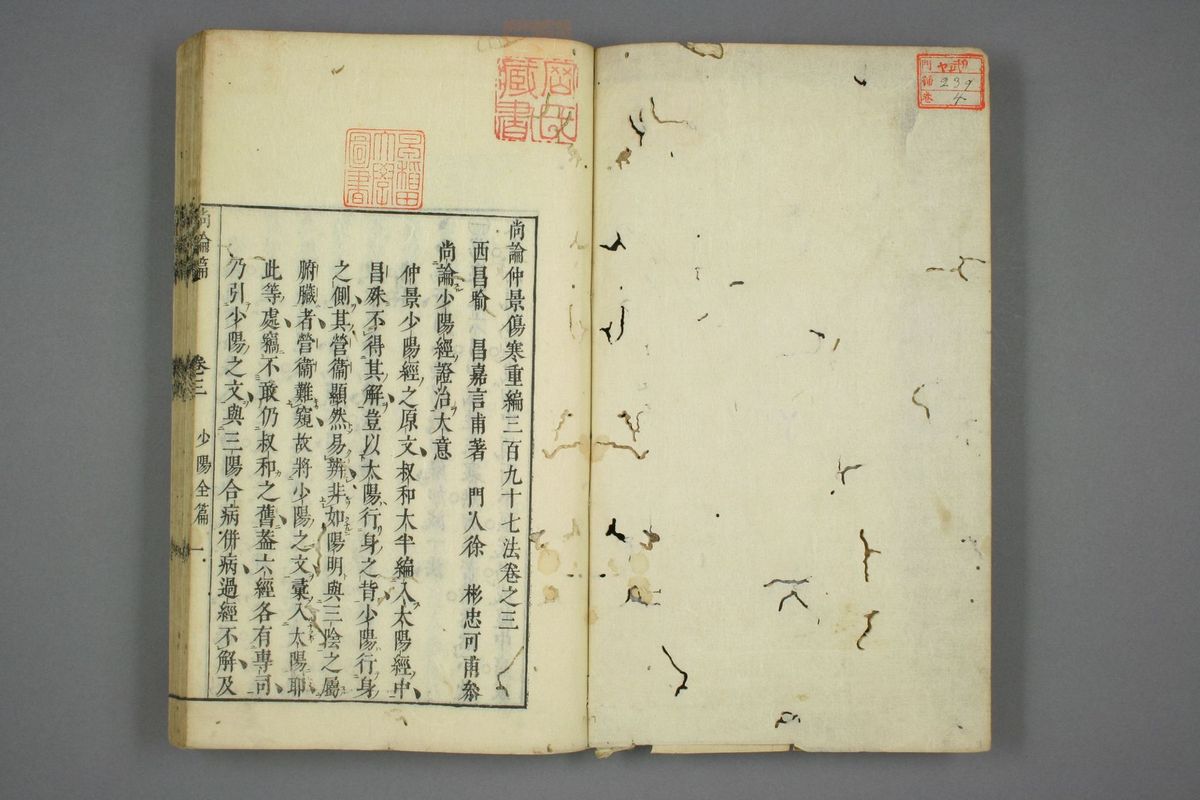 尚論仲景傷寒重編三百九十七法卷之三
西昌喻　昌嘉言甫著　門人徐　彬忠可甫叅
尚論少陽經證治大意
仲景少陽經之原文叔和大半編入太陽經中
昌殊不得其解豈以太陽行身之背少陽行身
之側其營衞顯然易辨非如陽明與三陰之屬
腑臟者營衞難窺故將少陽之文彙入太陽耶
此等處竊不敢仍叔和之舊葢六經各有專司
乃引少陽之文與三陽合病併病過經不解及
尚論篇　卷三　少陽全篇　一
早稻田大學圖書
藏書
門
239
卷 4